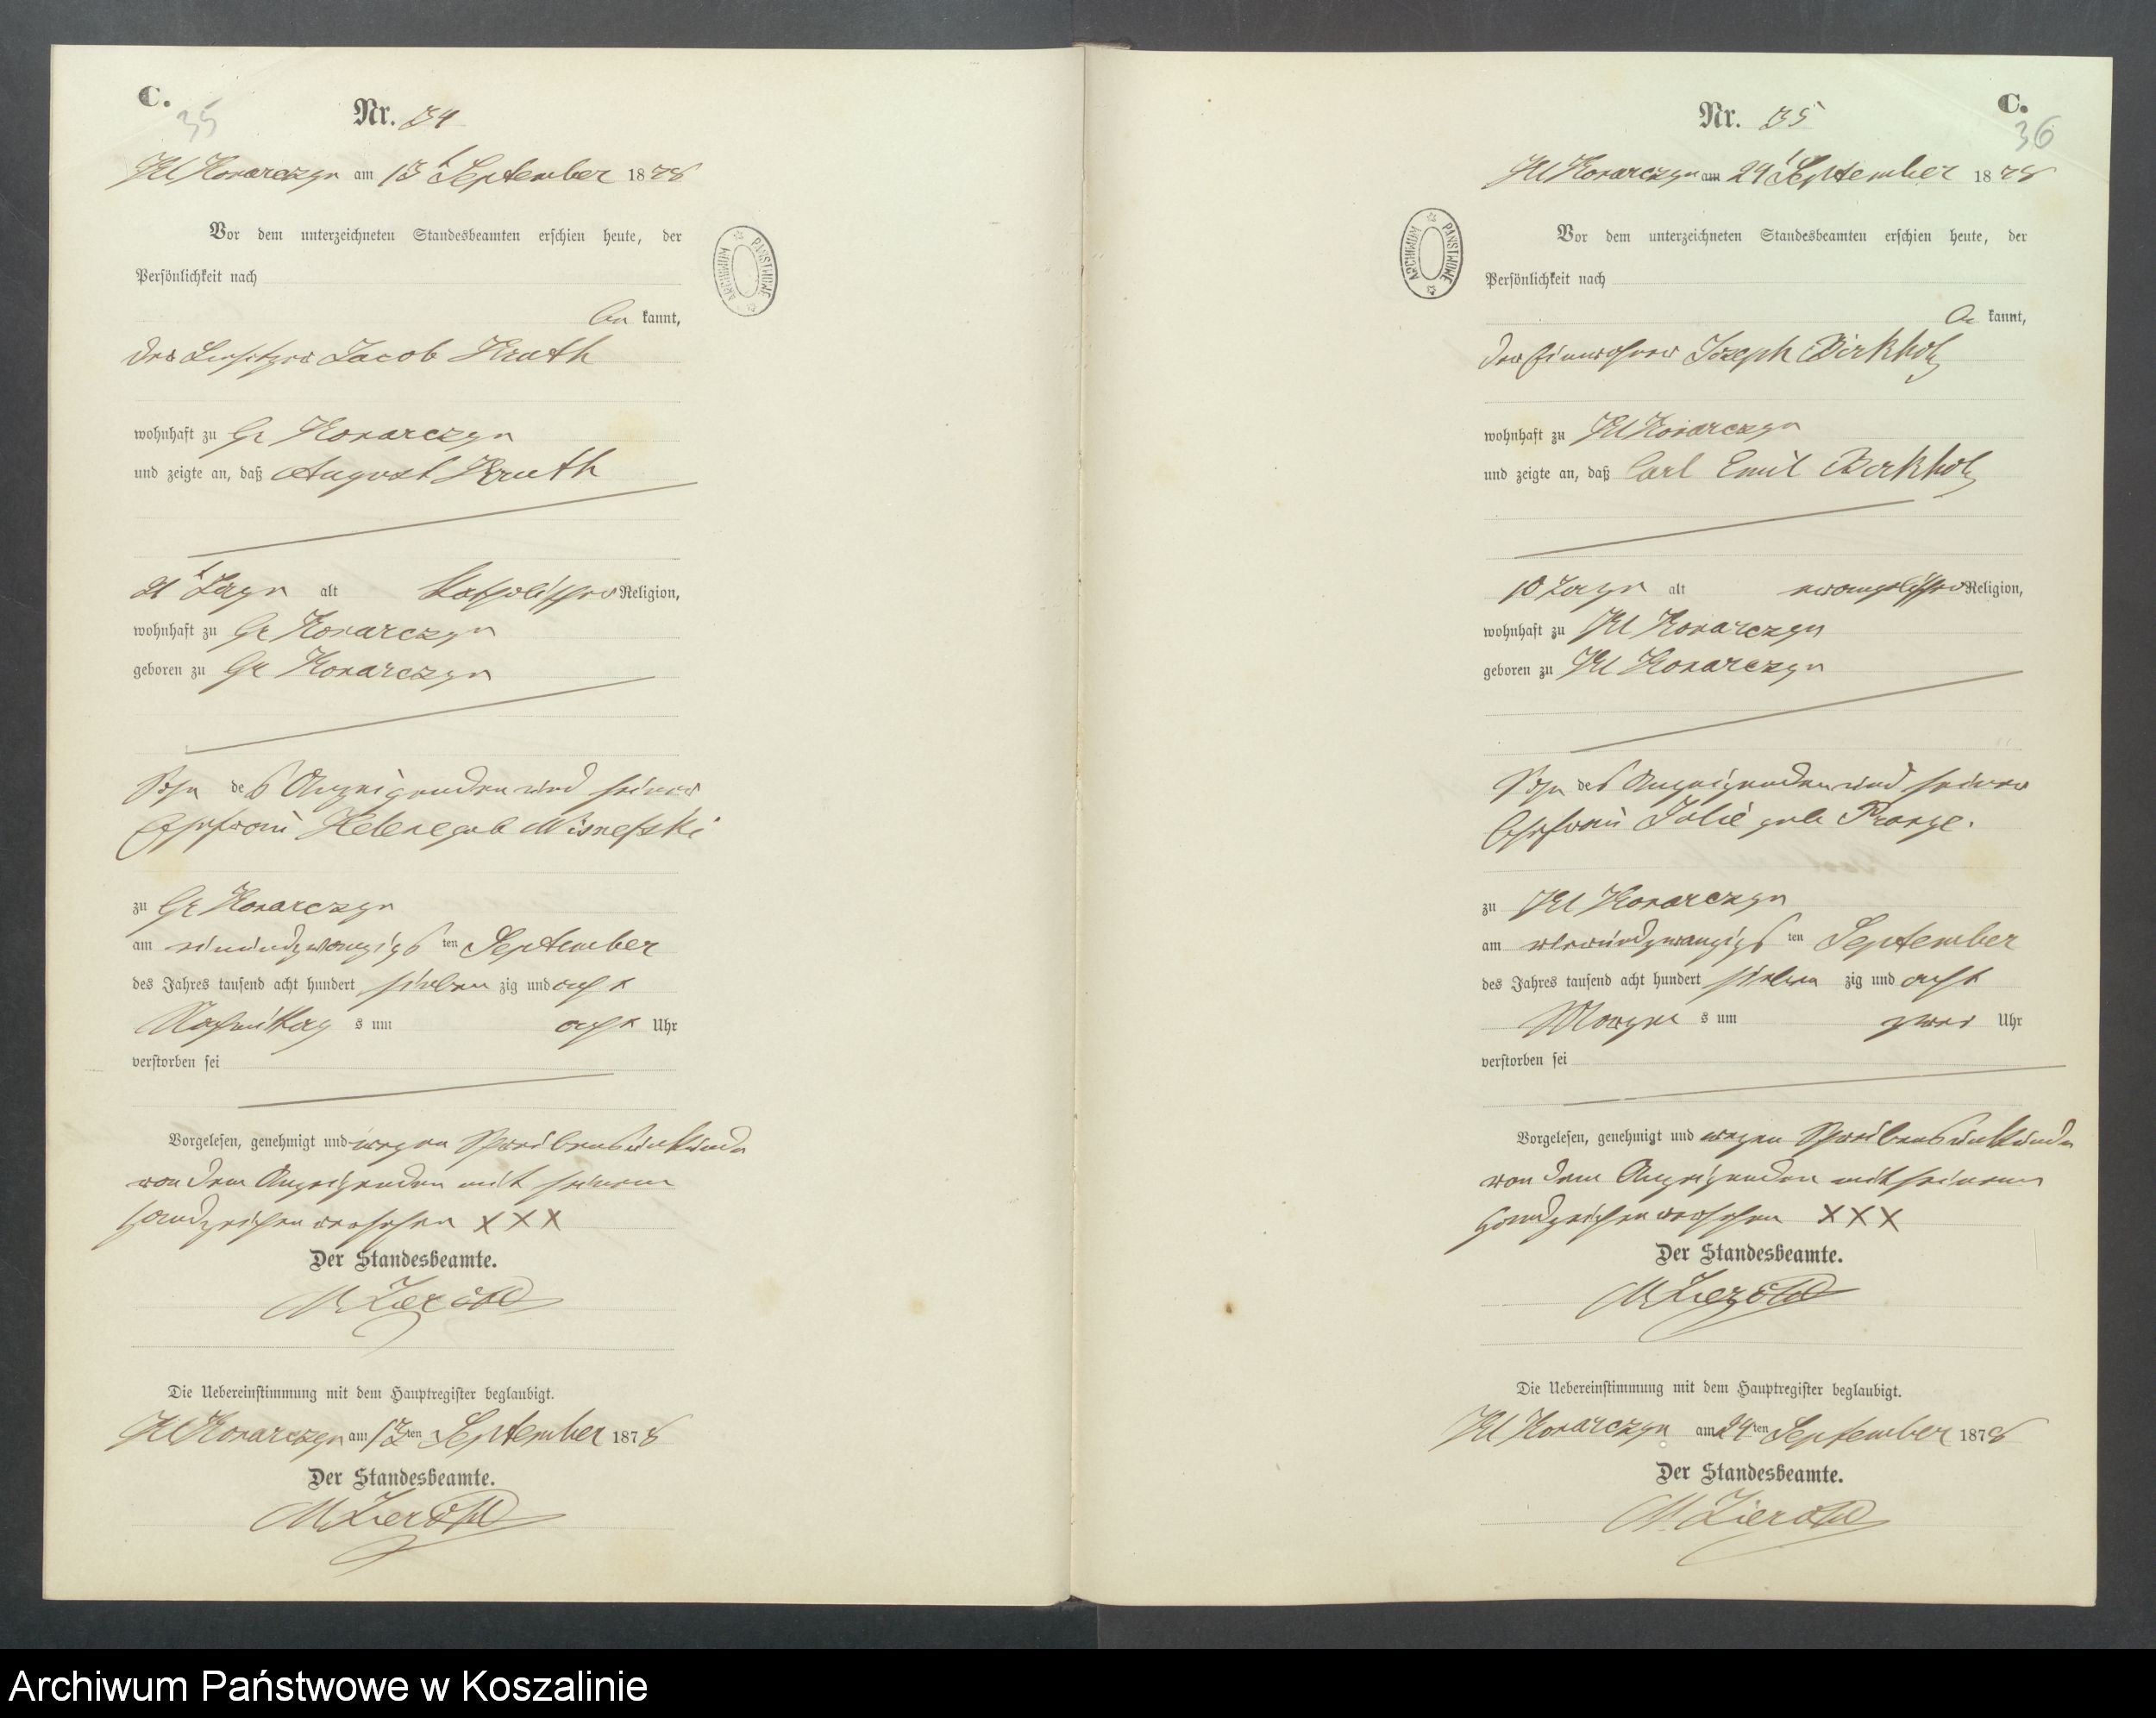 C.
35
Nr. 34
Kl Konarczyn am 13 t September 1878
Vor dem unterzeichneten Standesbeamten erschien heute, der
Persönlichkeit nach
be kannt,
der Besitzer Jacob Knuth
wohnhaft zu Gr Konarczyn
und zeigte an, daß August Knuth
21 t Tage alt katholischer Religion,
wohnhaft zu Gr Konarczyn
geboren zu Gr Konarczyn
Sohn des Anzeigenden und seiner
Ehefrau Helene geb Wisnefski
zu Gr Konarczyn
am einundzwanzigs ten September
des Jahres tausend acht hundert sieben zig und acht
Nachmittag s um acht Uhr
verstorben sei
Vorgelesen, genehmigt und wegen Schreibensunkunde
von dem Anzeigenden mit seinem
Handzeichen versehen XXX
Der Standesbeamte.
Die Uebereinstimmung mit dem Hauptregister beglaubigt.
Kl Konarczyn am ten September 1878
Der Standesbeamte.
ARCHIWUM PAŃSTWOWE
Nr. 35
C.
36
Kl Konarczyn am 24 t September 1878
Vor dem unterzeichneten Standesbeamten erschien heute, der
Persönlichkeit nach
be kannt,
der Einwohner Joseph Birkholz
wohnhaft zu Kl Konarczyn
und zeigte an, daß Carl Emil Birkholz
10 Tage alt evangelischer Religion,
wohnhaft zu Kl Konarczyn
geboren zu Kl Konarczyn
Sohn des Anzeigenden und seiner
Ehefrau Julie geb Prange.
zu Kl Konarczyn
am vierundzwanzigs ten September
des Jahres tausend acht hundert sieben zig und acht
Morgen s um zwei Uhr
verstorben sei
Vorgelesen, genehmigt und wegen Schreibensunkunde
von dem Anzeigenden mit seinem
Handzeichen versehen XXX
Der Standesbeamte.
Die Uebereinstimmung mit dem Hauptregister beglaubigt.
Kl Konarczyn am 24 ten September 1878
Der Standesbeamte.
ARCHIWUM PAŃSTWOWE
Archiwum Państwowe w Koszalinie